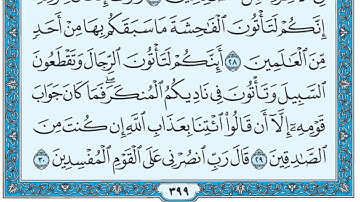 إِنَّكُمْ لَتَأْتُونَ ٱلْفَٰحِشَةَ مَا سَبَقَكُم بِهَا مِنْ أَحَدٍ
مِّنَ ٱلْعَٰلَمِينَ ٢٨ أَئِنَّكُمْ لَتَأْتُونَ ٱلرِّجَالَ وَتَقْطَعُونَ
ٱلسَّبِيلَ وَتَأْتُونَ فِى نَادِيكُمُ ٱلْمُنكَرَ ۖ فَمَا كَانَ جَوَابَ
قَوْمِهِۦٓ إِلَّآ أَن قَالُوا۟ ٱئْتِنَا بِعَذَابِ ٱللَّهِ إِن كُنتَ مِنَ
ٱلصَّٰدِقِينَ ٢٩ قَالَ رَبِّ ٱنصُرْنِى عَلَى ٱلْقَوْمِ ٱلْمُفْسِدِينَ ٣٠
٣٩٩